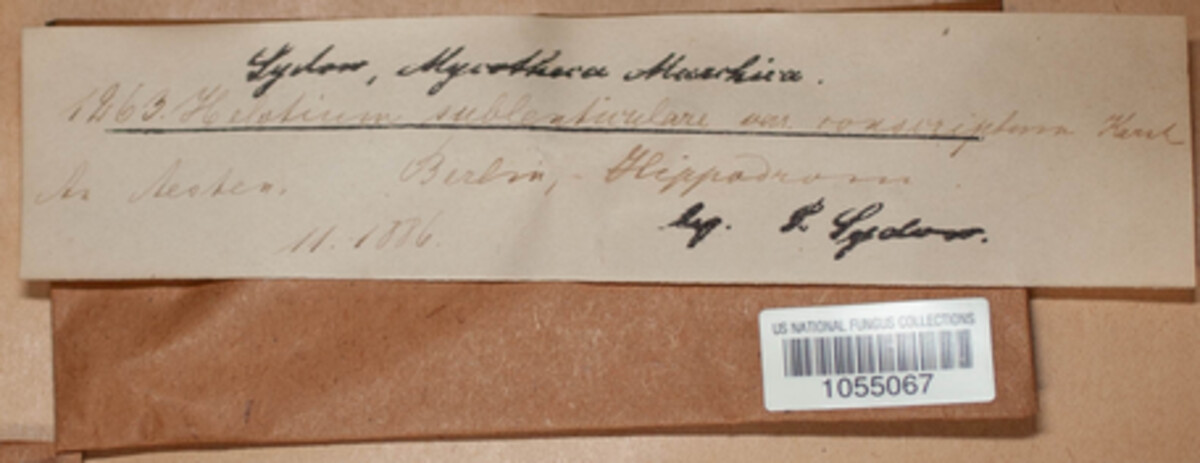 Sydow, Mycotheca Marchica.
1263. Helotium sublenticulare var. conscriptum Karst
An Aesten. Berlin, - Hippodrom.
11. 1886. leg. P. Sydow.
US NATIONAL FUNGUS COLLECTIONS
1055067